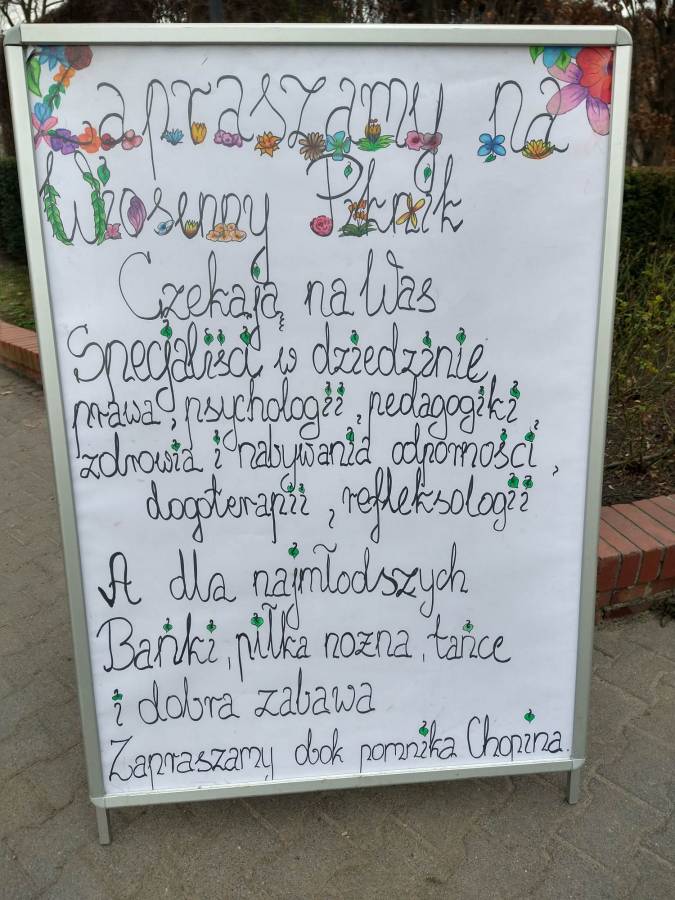 Zapraszamy na
Wiosenny Piknik
Czekają na Was
Specjaliści w dziedzinie
prawa, psychologii, pedagogiki,
zdrowia i nabywania odporności,
dogoterapii, refleksologii
A dla najmłodszych
Bańki, piłka nożna, tańce
i dobra zabawa
Zapraszamy obok pomnika Chopina.